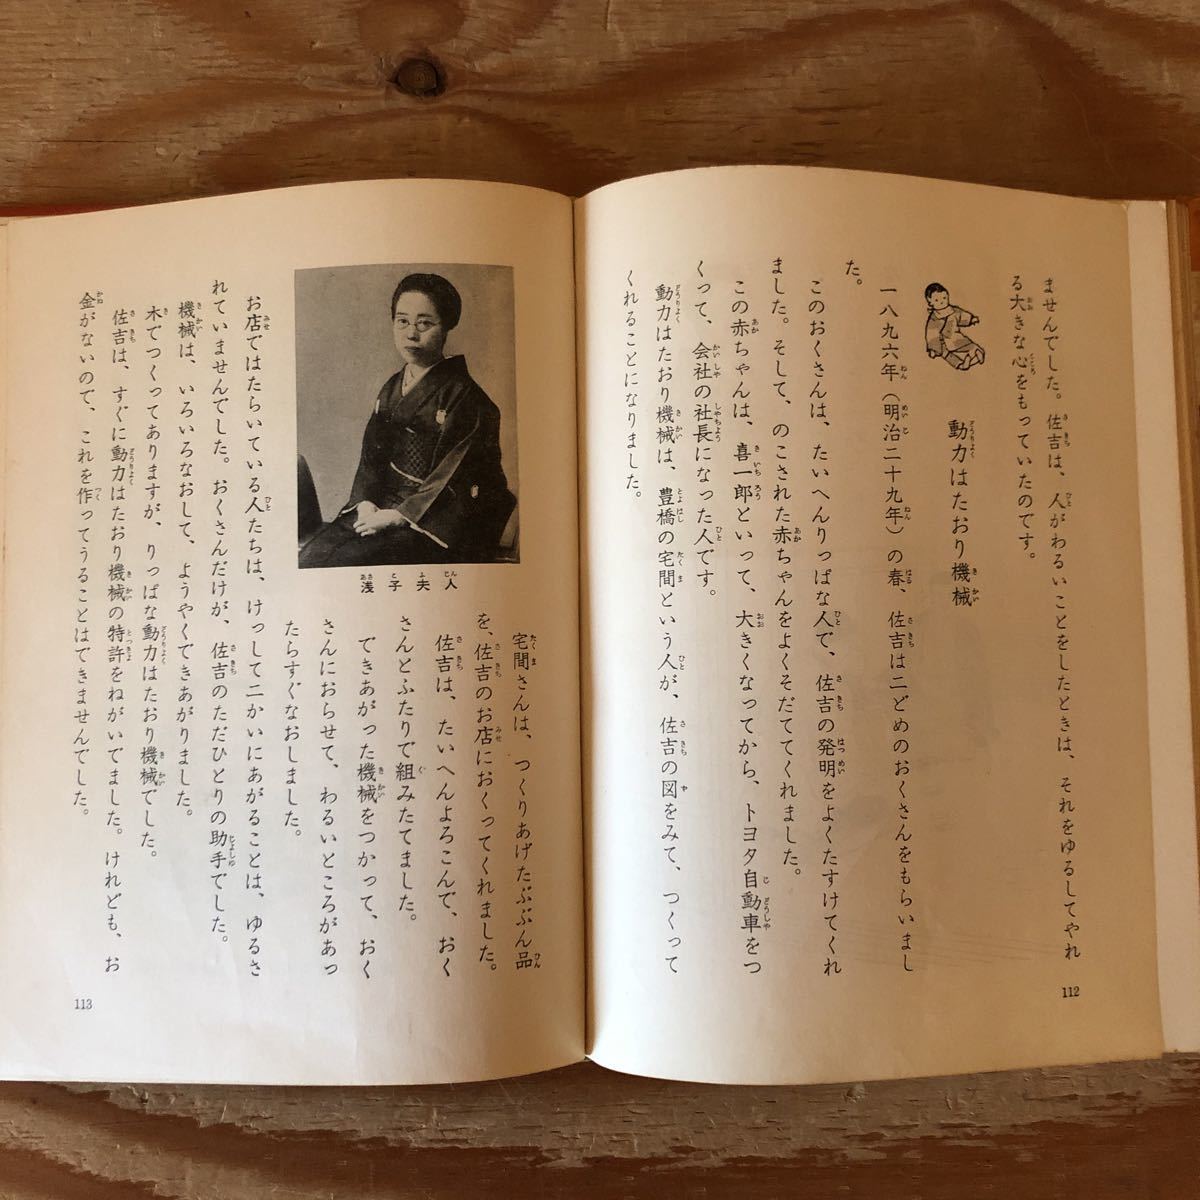 ませんでした。佐吉は、人がわるいことをしたときは、それをゆるしてやれ
る大きな心をもっていたのです。
動力はたおり機械
一八九六年(明治二十九年)の春、佐吉は二どめのおくさんをもらいまし
た。
このおくさんは、たいへんりっぱな人で、佐吉の発明をよくたすけてくれ
ました。そして、のこされた赤ちゃんをよくそだててくれました。
この赤ちゃんは、喜一郎といって、大きくなってから、トヨタ自動車をつ
くって、会社の社長になった人です。
動力はたおり機械は、豊橋の宅間という人が、佐吉の図をみて、つくって
くれることになりました。
112
浅子夫人
宅間さんは、つくりあげたぶぶん品
を、佐吉のお店におくってくれました。
佐吉は、たいへんよろこんで、おく
さんとふたりで組みたてました。
できあがった機械をつかって、おく
さんにおらせて、わるいところがあっ
たらすぐなおしました。
お店ではたらいている人たちは、けっして二かいにあがることは、ゆるさ
れていませんでした。おくさんだけが、佐吉のただひとりの助手でした。
機械は、いろいろなおして、ようやくできあがりました。
木でつくってありますが、りっぱな動力はたおり機械でした。
佐吉は、すぐに動力はたおり機械の特許をねがいでました。けれども、お
金がないので、これを作ってうることはできませんでした。
113